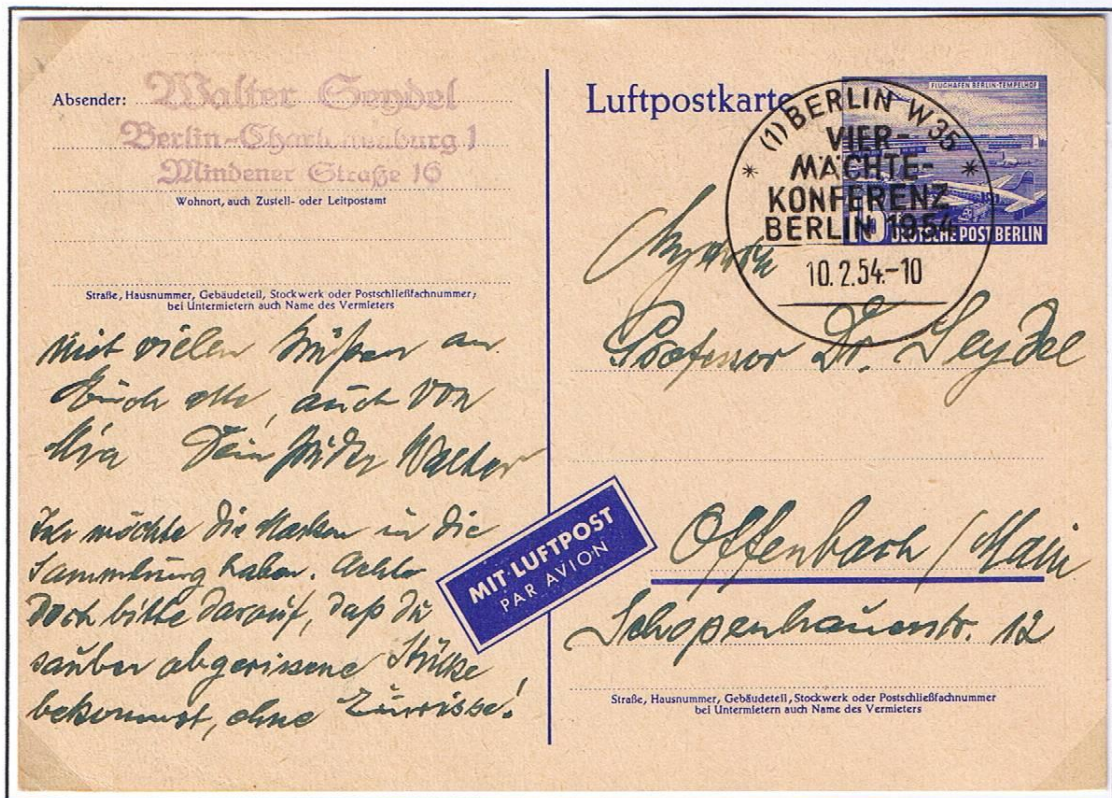 Absender: Walter Seydel
Berlin-Charlottenburg 1
Mindener Straße 16
Wohnort, auch Zustell- oder Leitpostamt
Straße, Hausnummer, Gebäudeteil, Stockwerk oder Postschließfachnummer;
bei Untermietern auch Name des Vermieters
mit vielen Grüßen an
Euch alle, auch von
Dein Walter
die Marken in die
Sammlung haben. Achte
doch bitte darauf, daß du
sauber abgerissene Stücke
bekommst, ohne Einrisse!
Luftpostkarte
FLUGHAFEN BERLIN-TEMPELHOF
10 DEUTSCHE POST BERLIN
(1) BERLIN W 35
VIER-
MÄCHTE-
KONFERENZ
BERLIN 1954
10.2.54.-10
Professor Dr. Seydel
MIT LUFTPOST
PAR AVION
Offenbach / Main
Schopenhauerstr. 12
Straße, Hausnummer, Gebäudeteil, Stockwerk oder Postschließfachnummer
bei Untermietern auch Name des Vermieters